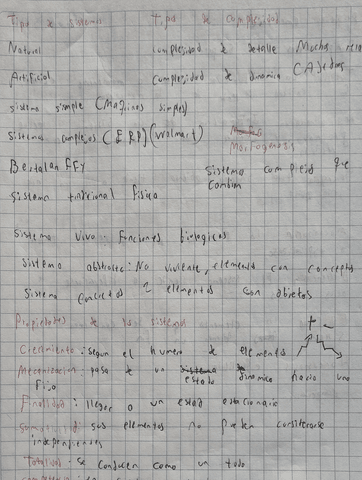 Tipo de sistemas Tipo de complejidad
Natural complejidad de detalle Muchas
Artificial complejidad de dinamica (Ajedrez
sistema simple (Maquinas simples)
Sistemas complejos (ERP) (Walmart)
Morfogenesis
Bertalanffy sistema complejos que
combin
Sistema funcional fisico
Sistema vivo: Funciones biologicas
Sistema abstractos: No viviente, elementos con conceptos
Sistema concretos 2 elementos con objetos
Propiedades de los sistemas + -
Crecimiento: segun el numero de elementos
Mecanizacion: paso de un estado dinamico hacia uno
fijo
Finalidad: llegar a un estad estacionario
sumatividad: sus elementos no pueden considerarse
independientes
Totalidad: se conducen como un todo